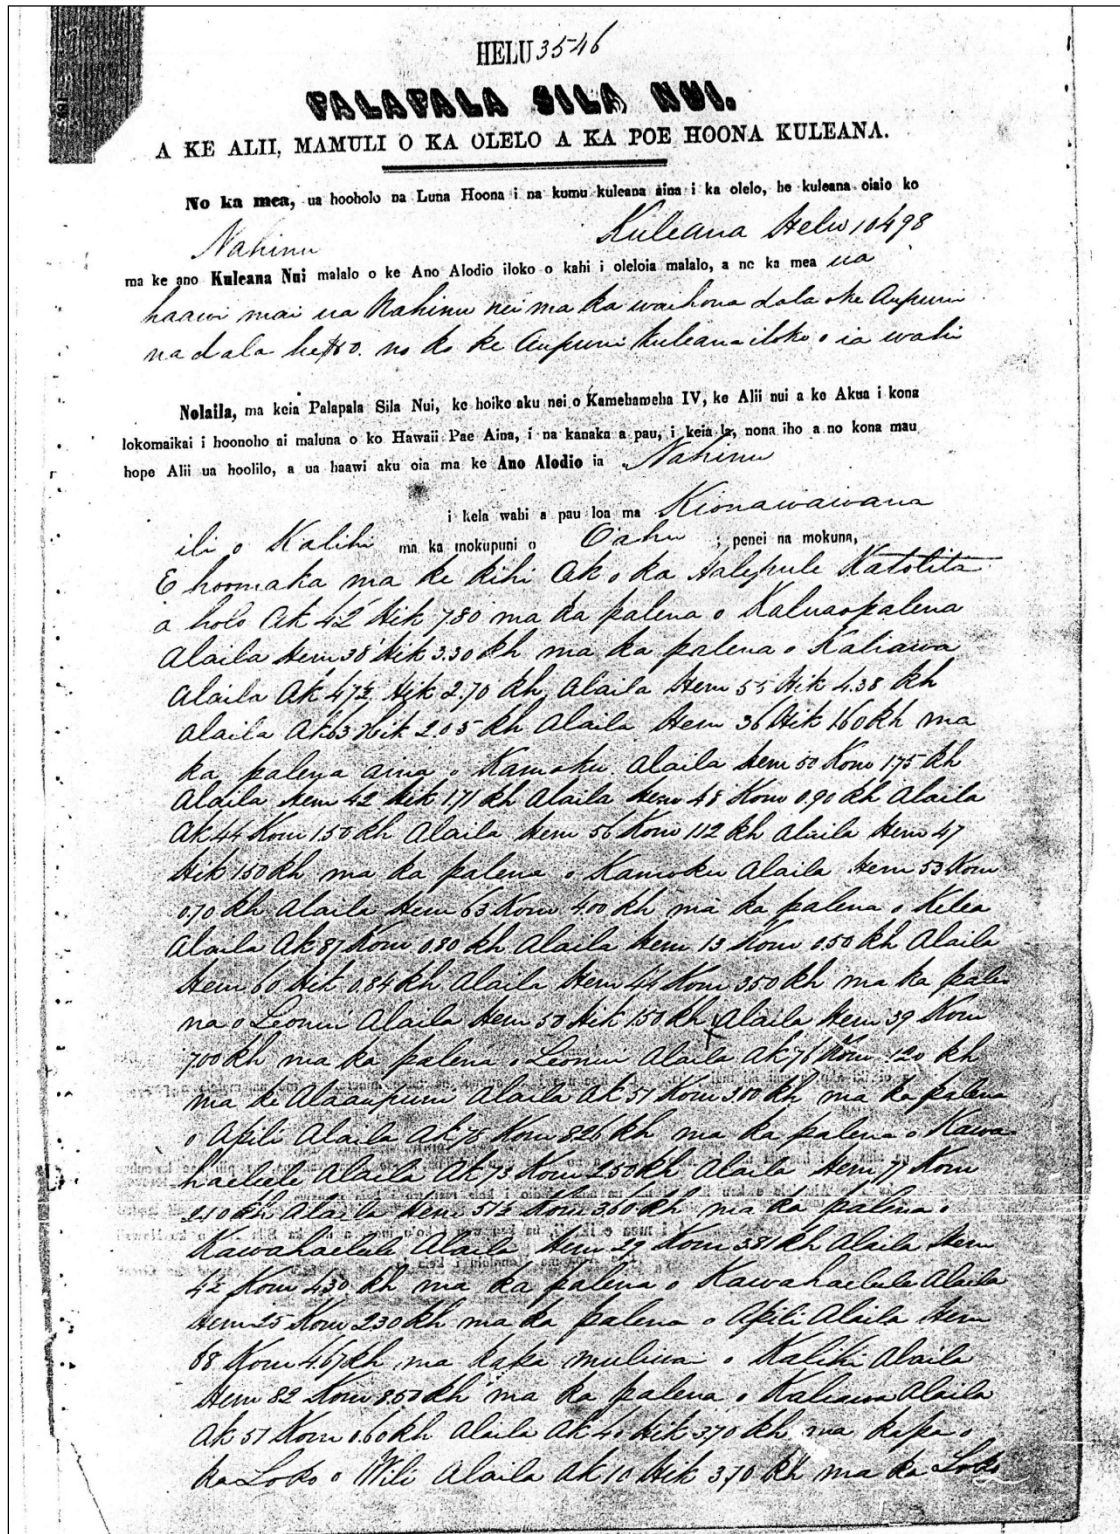 HELU 3546
PALAPALA SILA NUI.
A KE ALII, MAMULI O KA OLELO A KA POE HOONA KULEANA.
No ka mea, ua hooholo na Luna Hoona i na kumu kuleana aina i ka olelo, he kuleana oiaio ko
Nahinu Kuleana Helu 10498
ma ke ano Kuleana Nui malalo o ke Ano Alodio iloko o kahi i oleloia malalo, a no ka mea ua
haawi mai ua Nahinu nei ma ka waihona dala o ke Aupuni
na dala he no ko ke Aupuni kuleana iloko o ia wahi
Nolaila, ma keia Palapala Sila Nui, ke hoike aku nei o Kamehameha IV, ke Alii nui a ke Akua i kona
lokomaikai i hoonoho ai maluna o ko Hawaii Pae Aina, i na kanaka a pau, i keia la, nona iho a no kona mau
hope Alii ua hoolilo, a ua haawi aku oia ma ke Ano Alodio ia Nahinu
i kela wahi a pau loa ma Kionawawana
ili o Kalihi ma ka mokupuni o Oahu ; penei na mokuna,
E hoomaka ma ke kihi Ak o ka Halepule Katolika
a holo Ak 42 Hik 7.80 ma ka palena o Kaluaopalena
Alaila Hem 38 Hik 3.30 Kh ma ka palena o Kaliawa
Alaila Ak 47½ Hik 2.70 Kh, Alaila Hem 55 Hik 4.38 Kh
Alaila Ak 63 Hik 2.05 Kh Alaila Hem 36 Hik 1.60 Kh ma
ka palena aina o Kamoku Alaila Hem 50 Kom 1.75 Kh
Alaila Hem 42 Hik 1.71 Kh Alaila Hem 48 Kom 0.90 Kh Alaila
Ak 44 Kom 1.50 Kh Alaila Hem 56 Kom 1.12 Kh Alaila Hem 47
Hik 1.50 Kh ma ka palena o Kamoku Alaila Hem 53 Kom
0.70 Kh Alaila Hem 63 Kom 4.00 Kh ma ka palena o Kelea
Alaila Ak 87 Kom 0.80 Kh Alaila Hem 13 Kom 0.50 Kh Alaila
Hem 60 Hik 0.84 Kh Alaila Hem 44 Kom 3.50 Kh ma ka pale
na o Leonui Alaila Hem 50 Hik 1.50 Kh Alaila Hem 39 Kom
7.00 Kh ma ka palena o Leonui Alaila Ak 76 Kom 1.20 Kh
ma ke Alaaupuni Alaila Ak 51 Kom 3.80 Kh ma ka palena
o Apili Alaila Ak 78 Kom 8.26 Kh ma ka palena o Kawa
haelule Alaila Ak 73 Kom 2.50 Kh Alaila Hem 77 Kom
2.10 Kh Alaila Hem 51½ Kom 3.60 Kh ma ka palena o
Kawahaelule Alaila Hem 29 Kom 3.81 Kh Alaila Hem
42 Kom 4.30 Kh ma ka palena o Kawahaelule Alaila
Hem 25 Kom 2.30 Kh ma ka palena o Apili Alaila Hem
68 Kom 4.67 Kh ma kapa muliwai o Kalihi Alaila
Hem 82 Kom 8.50 Kh ma ka palena o Kaliawa Alaila
Ak 51 Kom 1.60 Kh Alaila Ak 40 Hik 3.70 Kh ma kapa o
ka Loko o Wili Alaila Ak 10 Hik 3.70 Kh ma ka Loko